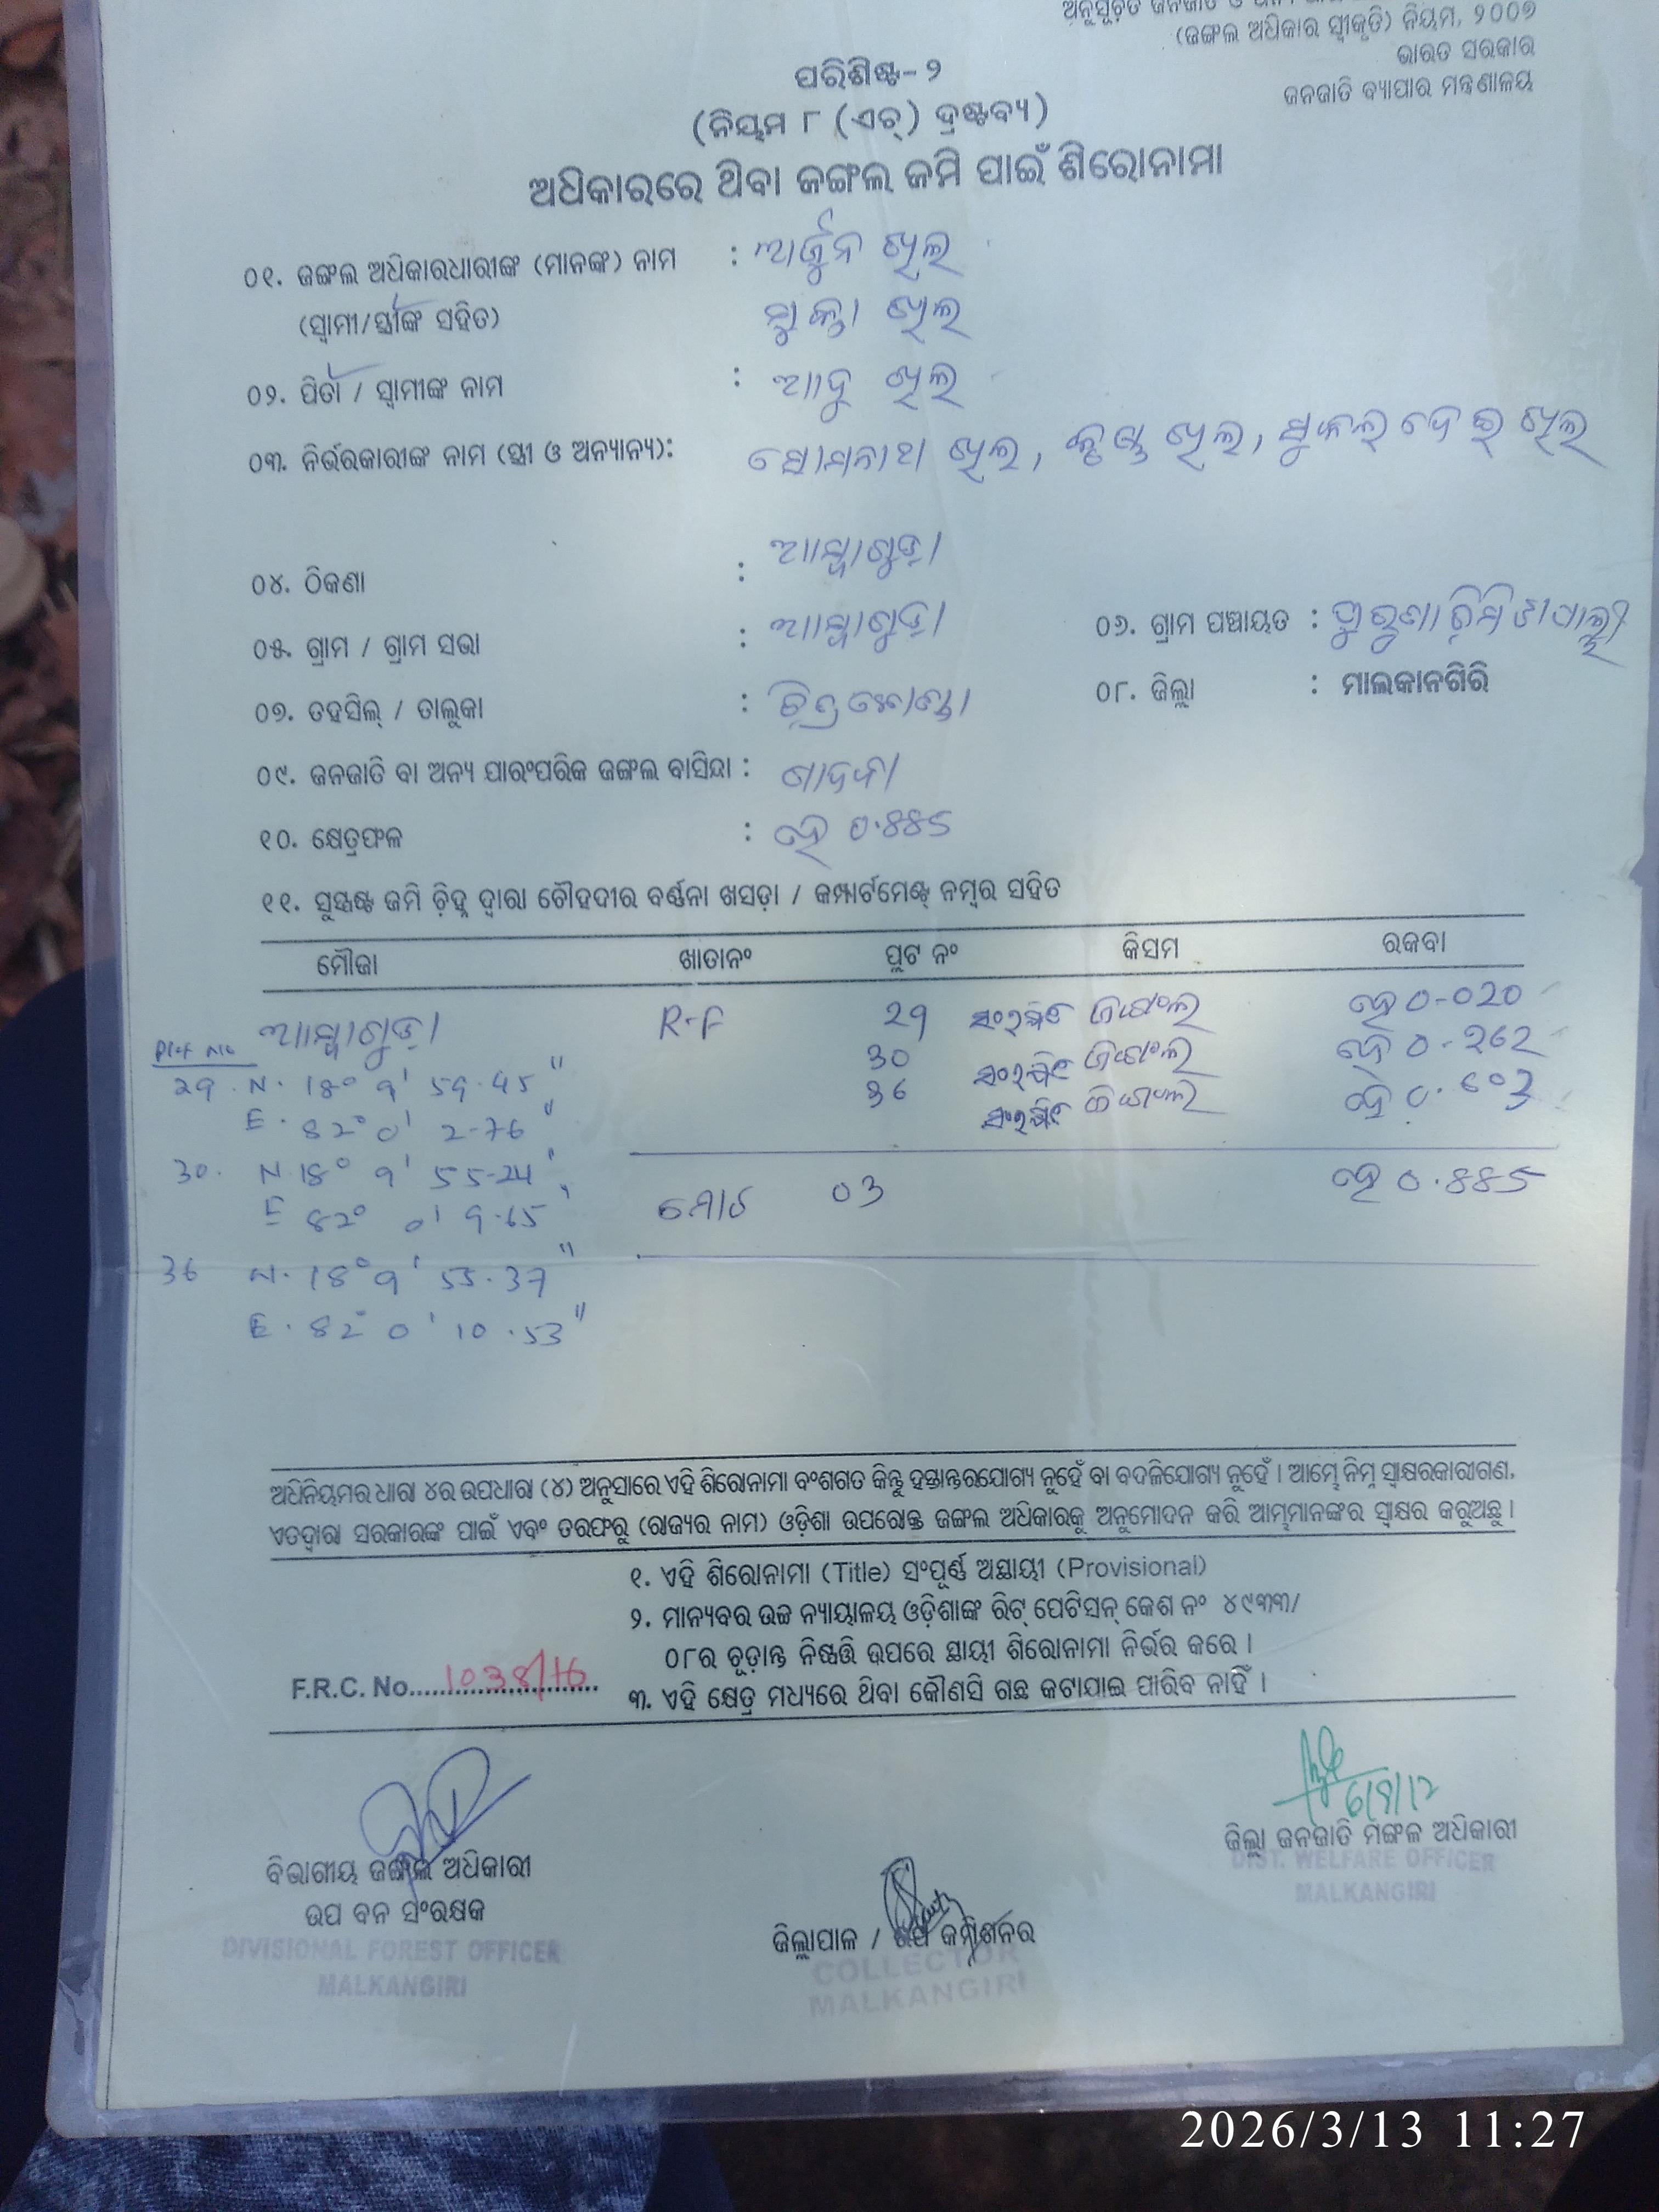 ଅନୁସୂଚିତ ଜନଜାତି ଓ
(ଜଙ୍ଗଲ ଅଧିକାର ସ୍ୱୀକୃତି) ନିୟମ, ୨୦୦୭
ଭାରତ ସରକାର
ଜନଜାତି ବ୍ୟାପାର ମନ୍ତ୍ରଣାଳୟ
ପରିଶିଷ୍ଟ-୨
(ନିୟମ ୮ (ଏଚ୍) ଦ୍ରଷ୍ଟବ୍ୟ)
ଅଧିକାରରେ ଥିବା ଜଙ୍ଗଲ ଜମି ପାଇଁ ଶିରୋନାମା
୦୧. ଜଙ୍ଗଲ ଅଧିକାରଧାରୀଙ୍କ (ମାନଙ୍କ) ନାମ : ଅର୍ଜୁନ ଖିଲ
(ସ୍ୱାମୀ/ସ୍ତ୍ରୀଙ୍କ ସହିତ) ମୁକ୍ତା ଖିଲ
୦୨. ପିତା / ସ୍ୱାମୀଙ୍କ ନାମ : ଆଦୁ ଖିଲ
୦୩. ନିର୍ଭରକାରୀଙ୍କ ନାମ (ସ୍ତ୍ରୀ ଓ ଅନ୍ୟାନ୍ୟ): ସୋମନାଥ ଖିଲ, ଖିଲ, ଖିଲ
୦୪. ଠିକଣା : ଆମ୍ବାଗୁଡ଼ା
୦୫. ଗ୍ରାମ / ଗ୍ରାମ ସଭା : ଆମ୍ବାଗୁଡ଼ା ୦୬. ଗ୍ରାମ ପଞ୍ଚାୟତ :
୦୭. ତହସିଲ୍ / ତାଲୁକା : ଚିତ୍ରକୋଣ୍ଡା ୦୮. ଜିଲ୍ଲା : ମାଲକାନଗିରି
୦୯. ଜନଜାତି ବା ଅନ୍ୟ ପାରଂପରିକ ଜଙ୍ଗଲ ବାସିନ୍ଦା : ଗାଦବା
୧୦. କ୍ଷେତ୍ରଫଳ : ହେ ୦.୫୫5
୧୧. ସୁସ୍ପଷ୍ଟ ଜମି ଚିହ୍ନ ଦ୍ୱାରା ଚୌହଦୀର ବର୍ଣ୍ଣନା ଖସଡ଼ା / କମ୍ପାର୍ଟମେଣ୍ଟ୍ ନମ୍ବର ସହିତ
ମୌଜା ଖାତାନଂ ପ୍ଲଟ ନଂ କିସମ ରକବା
ଆମ୍ବାଗୁଡ଼ା R-F 29 ସଂରକ୍ଷିତ ଜଙ୍ଗଲ ହେ 0-020
30 ସଂରକ୍ଷିତ ଜଙ୍ଗଲ ହେ 0-262
36 ସଂରକ୍ଷିତ ଜଙ୍ଗଲ ହେ 0.603
Plot No
29. N. 18° 9' 59.45"
E. 82° 0' 2-76"
30. N. 18° 9' 55-24"
E 82° 0' 9.65"
36 N. 18° 9' 55.37"
E. 82° 0' 10.53"
ମୋଟ 03 ହେ 0.885
ଅଧିନିୟମର ଧାରା ୪ର ଉପଧାରା (୪) ଅନୁସାରେ ଏହି ଶିରୋନାମା ବଂଶଗତ କିନ୍ତୁ ହସ୍ତାନ୍ତରଯୋଗ୍ୟ ନୁହେଁ ବା ବଦଳିଯୋଗ୍ୟ ନୁହେଁ । ଆମ୍ଭେ ନିମ୍ନ ସ୍ୱାକ୍ଷରକାରୀଗଣ,
ଏତଦ୍ଦ୍ୱାରା ସରକାରଙ୍କ ପାଇଁ ଏବଂ ତରଫରୁ (ରାଜ୍ୟର ନାମ) ଓଡ଼ିଶା ଉପରୋକ୍ତ ଜଙ୍ଗଲ ଅଧିକାରକୁ ଅନୁମୋଦନ କରି ଆମ୍ଭମାନଙ୍କର ସ୍ୱାକ୍ଷର କରୁଅଛୁ ।
୧. ଏହି ଶିରୋନାମା (Title) ସଂପୂର୍ଣ୍ଣ ଅସ୍ଥାୟୀ (Provisional)
୨. ମାନ୍ୟବର ଉଚ୍ଚ ନ୍ୟାୟାଳୟ ଓଡ଼ିଶାଙ୍କ ରିଟ୍ ପେଟିସନ୍ କେଶ ନଂ ୪୯୩୩/
୦୮ର ଚୂଡ଼ାନ୍ତ ନିଷ୍ପତ୍ତି ଉପରେ ସ୍ଥାୟୀ ଶିରୋନାମା ନିର୍ଭର କରେ ।
୩. ଏହି କ୍ଷେତ୍ର ମଧ୍ୟରେ ଥିବା କୌଣସି ଗଛ କଟାଯାଇ ପାରିବ ନାହିଁ ।
F.R.C. No. 1038/16
6/9/12
ଜିଲ୍ଲା ଜନଜାତି ମଙ୍ଗଳ ଅଧିକାରୀ
DIST. WELFARE OFFICER
MALKANGIRI
ବିଭାଗୀୟ ଜଙ୍ଗଲ ଅଧିକାରୀ
ଉପ ବନ ସଂରକ୍ଷକ
DIVISIONAL FOREST OFFICER
MALKANGIRI
ଜିଲ୍ଲାପାଳ / ଉପ କମିଶନର
COLLECTOR
MALKANGIRI
2026/3/13 11:27